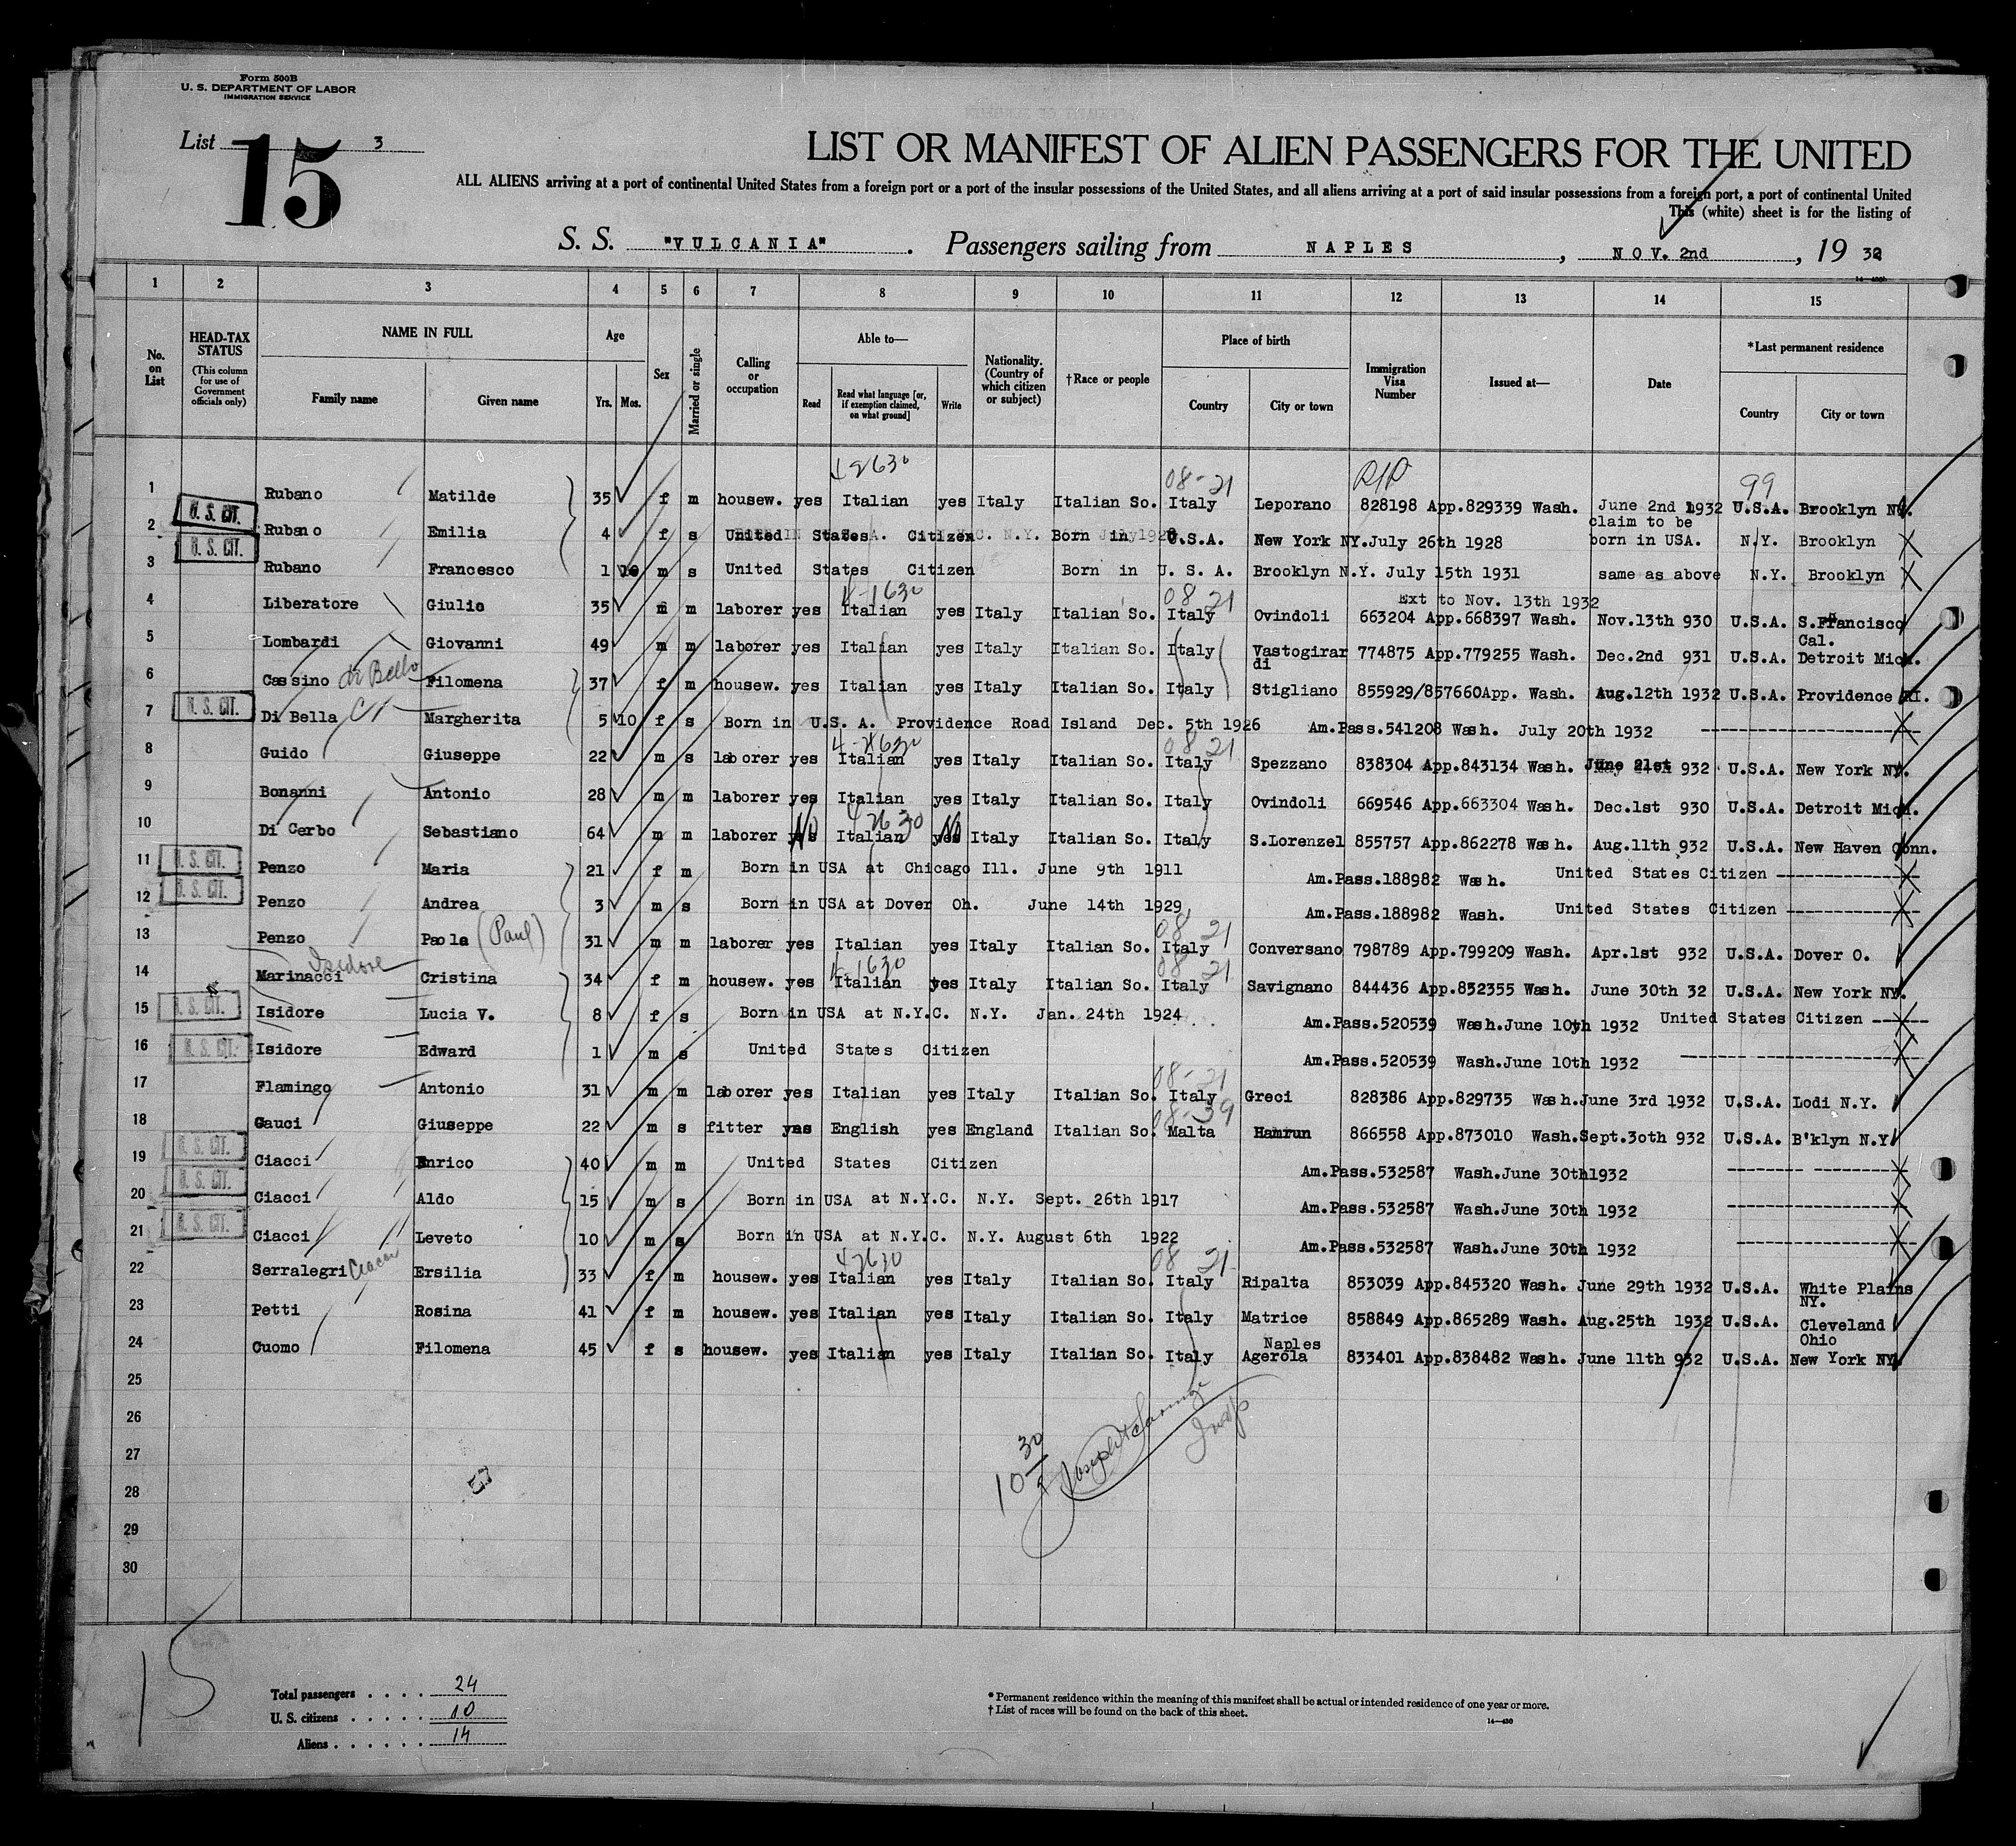 Form 500B
U. S. DEPARTMENT OF LABOR
IMMIGRATION SERVICE
List 3
15
LIST OR MANIFEST OF ALIEN PASSENGERS FOR THE UNITED
ALL ALIENS arriving at a port of continental United States from a foreign port or a port of the insular possessions of the United States, and all aliens arriving at a port of said insular possessions from a foreign port, a port of continental United
This (white) sheet is for the listing of
S. S. "VULCANIA". Passengers sailing from NAPLES, NOV. 2nd, 19 32
1 2 3 4 5 6 7 8 9 10 11 12 13 14 15
No. on List
HEAD-TAX STATUS (This column for use of Government officials only)
NAME IN FULL Family name Given name
Age Yrs. Mos.
Sex
Married or single
Calling or occupation
Able to— Read Read what language [or, if exemption claimed, on what ground] Write
Nationality. (Country of which citizen or subject)
†Race or people
Place of birth Country City or town
Immigration Visa Number
Issued at—
Date
*Last permanent residence Country City or town
08-21 99
1 Rubano Matilde 35 f m housew. yes Italian yes Italy Italian So. Italy Leporano 828198 App.829339 Wash. June 2nd 1932 U.S.A. Brooklyn NY.
2 U. S. CIT. Rubano Emilia 4 f s United States Citizen Born in U.S.A. New York NY. July 26th 1928 claim to be born in USA. N.Y. Brooklyn
3 U. S. CIT. Rubano Francesco 1 10 m s United States Citizen Born in U. S. A. Brooklyn N.Y. July 15th 1931 same as above N.Y. Brooklyn
4-1630 08 21 Ext to Nov. 13th 1932
4 Liberatore Giulio 35 m m laborer yes Italian yes Italy Italian So. Italy Ovindoli 663204 App.668397 Wash. Nov.13th 930 U.S.A. S.Francisco Cal.
5 Lombardi Giovanni 49 m m laborer yes Italian yes Italy Italian So. Italy Vastogirardi 774875 App.779255 Wash. Dec.2nd 931 U.S.A. Detroit Mich.
6 Cassino di Bello Filomena 37 f m housew. yes Italian yes Italy Italian So. Italy Stigliano 855929/857660App. Wash. Aug.12th 1932 U.S.A. Providence RI.
7 U. S. CIT. Di Bella Margherita 5 10 f s Born in U.S. A. Providence Road Island Dec. 5th 1926 Am.Pass.541208 Wash. July 20th 1932
08 21
8 Guido Giuseppe 22 m s laborer yes Italian yes Italy Italian So. Italy Spezzano 838304 App.843134 Wash. June 21st 932 U.S.A. New York NY.
9 Bonanni Antonio 28 m m laborer yes Italian yes Italy Italian So. Italy Ovindoli 669546 App.663304 Wash. Dec.1st 930 U.S.A. Detroit Mich.
10 Di Cerbo Sebastiano 64 m m laborer No Italian No Italy Italian So. Italy S.Lorenzel 855757 App.862278 Wash. Aug.11th 932 U.S.A. New Haven Conn.
11 U. S. CIT. Penzo Maria 21 f m Born in USA at Chicago Ill. June 9th 1911 Am.Pass.188982 Wash. United States Citizen
12 U. S. CIT. Penzo Andrea 3 m s Born in USA at Dover Oh. June 14th 1929 Am.Pass.188982 Wash. United States Citizen
08 21
13 Penzo Paolo (Paul) 31 m m laborer yes Italian yes Italy Italian So. Italy Conversano 798789 App.799209 Wash. Apr.1st 932 U.S.A. Dover O.
Isidore 4-1630 08 21
14 Marinacci Cristina 34 f m housew. yes Italian yes Italy Italian So. Italy Savignano 844436 App.852355 Wash. June 30th 32 U.S.A. New York NY.
15 U. S. CIT. Isidore Lucia V. 8 f s Born in USA at N.Y.C. N.Y. Jan. 24th 1924 Am.Pass.520539 Wash.June 10th 1932 United States Citizen
16 U. S. CIT. Isidore Edward 1 m s United States Citizen Am.Pass.520539 Wash.June 10th 1932
08-21
17 Flamingo Antonio 31 m m laborer yes Italian yes Italy Italian So. Italy Greci 828386 App.829735 Wash.June 3rd 1932 U.S.A. Lodi N.Y.
08-39
18 Gauci Giuseppe 22 m s fitter yes English yes England Italian So. Malta Hamrun 866558 App.873010 Wash.Sept.30th 932 U.S.A. B'klyn N.Y.
19 U. S. CIT. Ciacci Enrico 40 m m United States Citizen Am.Pass.532587 Wash.June 30th1932
20 U. S. CIT. Ciacci Aldo 15 m s Born in USA at N.Y.C. N.Y. Sept. 26th 1917 Am.Pass.532587 Wash.June 30th 1932
21 U. S. CIT. Ciacci Leveto 10 m s Born in USA at N.Y.C. N.Y. August 6th 1922 Am.Pass.532587 Wash.June 30th 1932
08 21
22 Serralegri Ciacci Ersilia 33 f m housew. yes Italian yes Italy Italian So. Italy Ripalta 853039 App.845320 Wash. June 29th 1932 U.S.A. White Plains NY.
23 Petti Rosina 41 f m housew. yes Italian yes Italy Italian So. Italy Matrice 858849 App.865289 Wash. Aug.25th 1932 U.S.A. Cleveland Ohio
24 Cuomo Filomena 45 f s housew. yes Italian yes Italy Italian So. Italy Naples Agerola 833401 App.838482 Wash. June 11th 932 U.S.A. New York NY.
25
26
27
28
29
30
10 30
Insp
15
Total passengers . . . . 24
U. S. citizens . . . . . 10
Aliens . . . . . . 14
* Permanent residence within the meaning of this manifest shall be actual or intended residence of one year or more.
† List of races will be found on the back of this sheet.
14—430